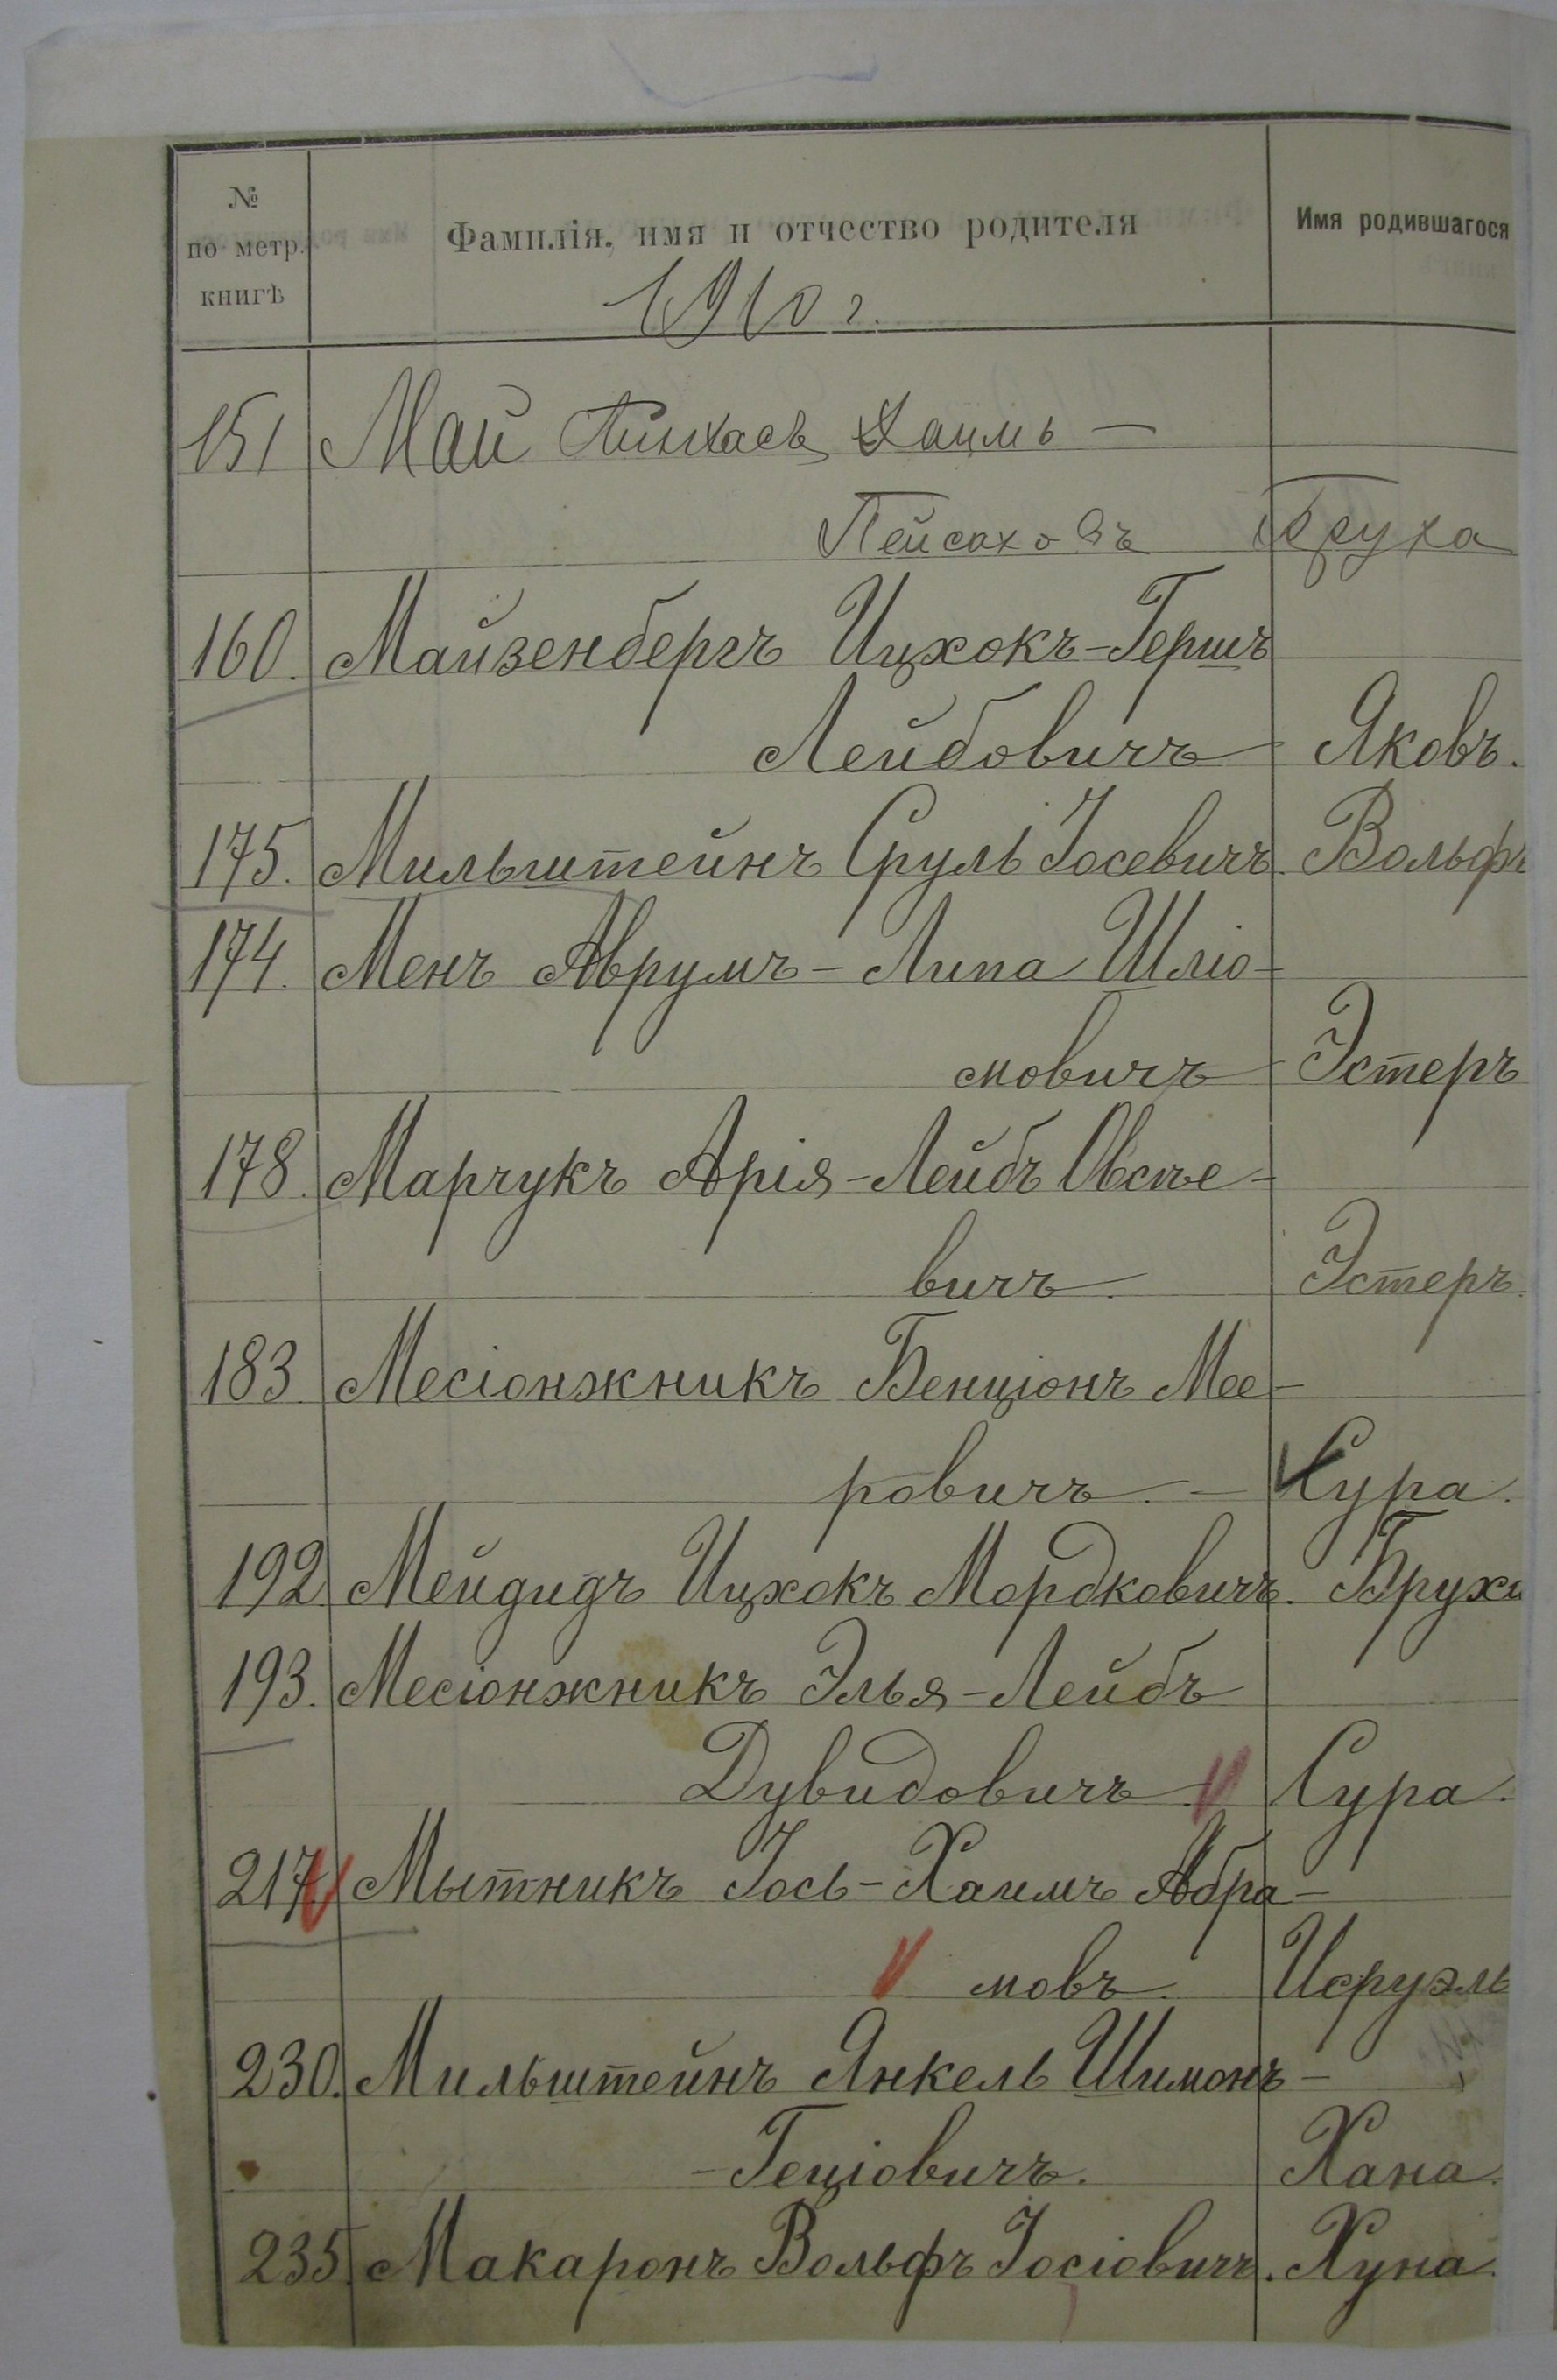 № по метр. книгѣ Фамилія, имя и отчество родителя Имя родившагося
1910 г.
151 Май Пинхасъ Хаимъ —
Пейсаховъ Бруха
160. Майзенбергъ Ицхокъ-Гершъ
Лейбовичъ Яковъ.
175. Мильштейнъ Сруль Іосевичъ. Вольфъ
174. Менъ Аврумъ-Липа Шліо-
мовичъ Эстеръ
178. Марчукъ Арія-Лейбъ Овсѣе-
вичъ Эстеръ.
183 Месіонжникъ Бенціонъ Мее-
ровичъ. — Сура.
192 Мейдидъ Ицхокъ Мордковичъ. Бруха
193. Месіонжникъ Элья-Лейбъ
Дувидовичъ. Сура.
217. Мытникъ Іось-Хаимъ Абра-
мовъ. Исруэль
230. Мильштейнъ Янкель Шимонъ-
-Геціовичъ. Хана.
235. Макаронъ Вольфъ Іосіовичъ. Хуна.